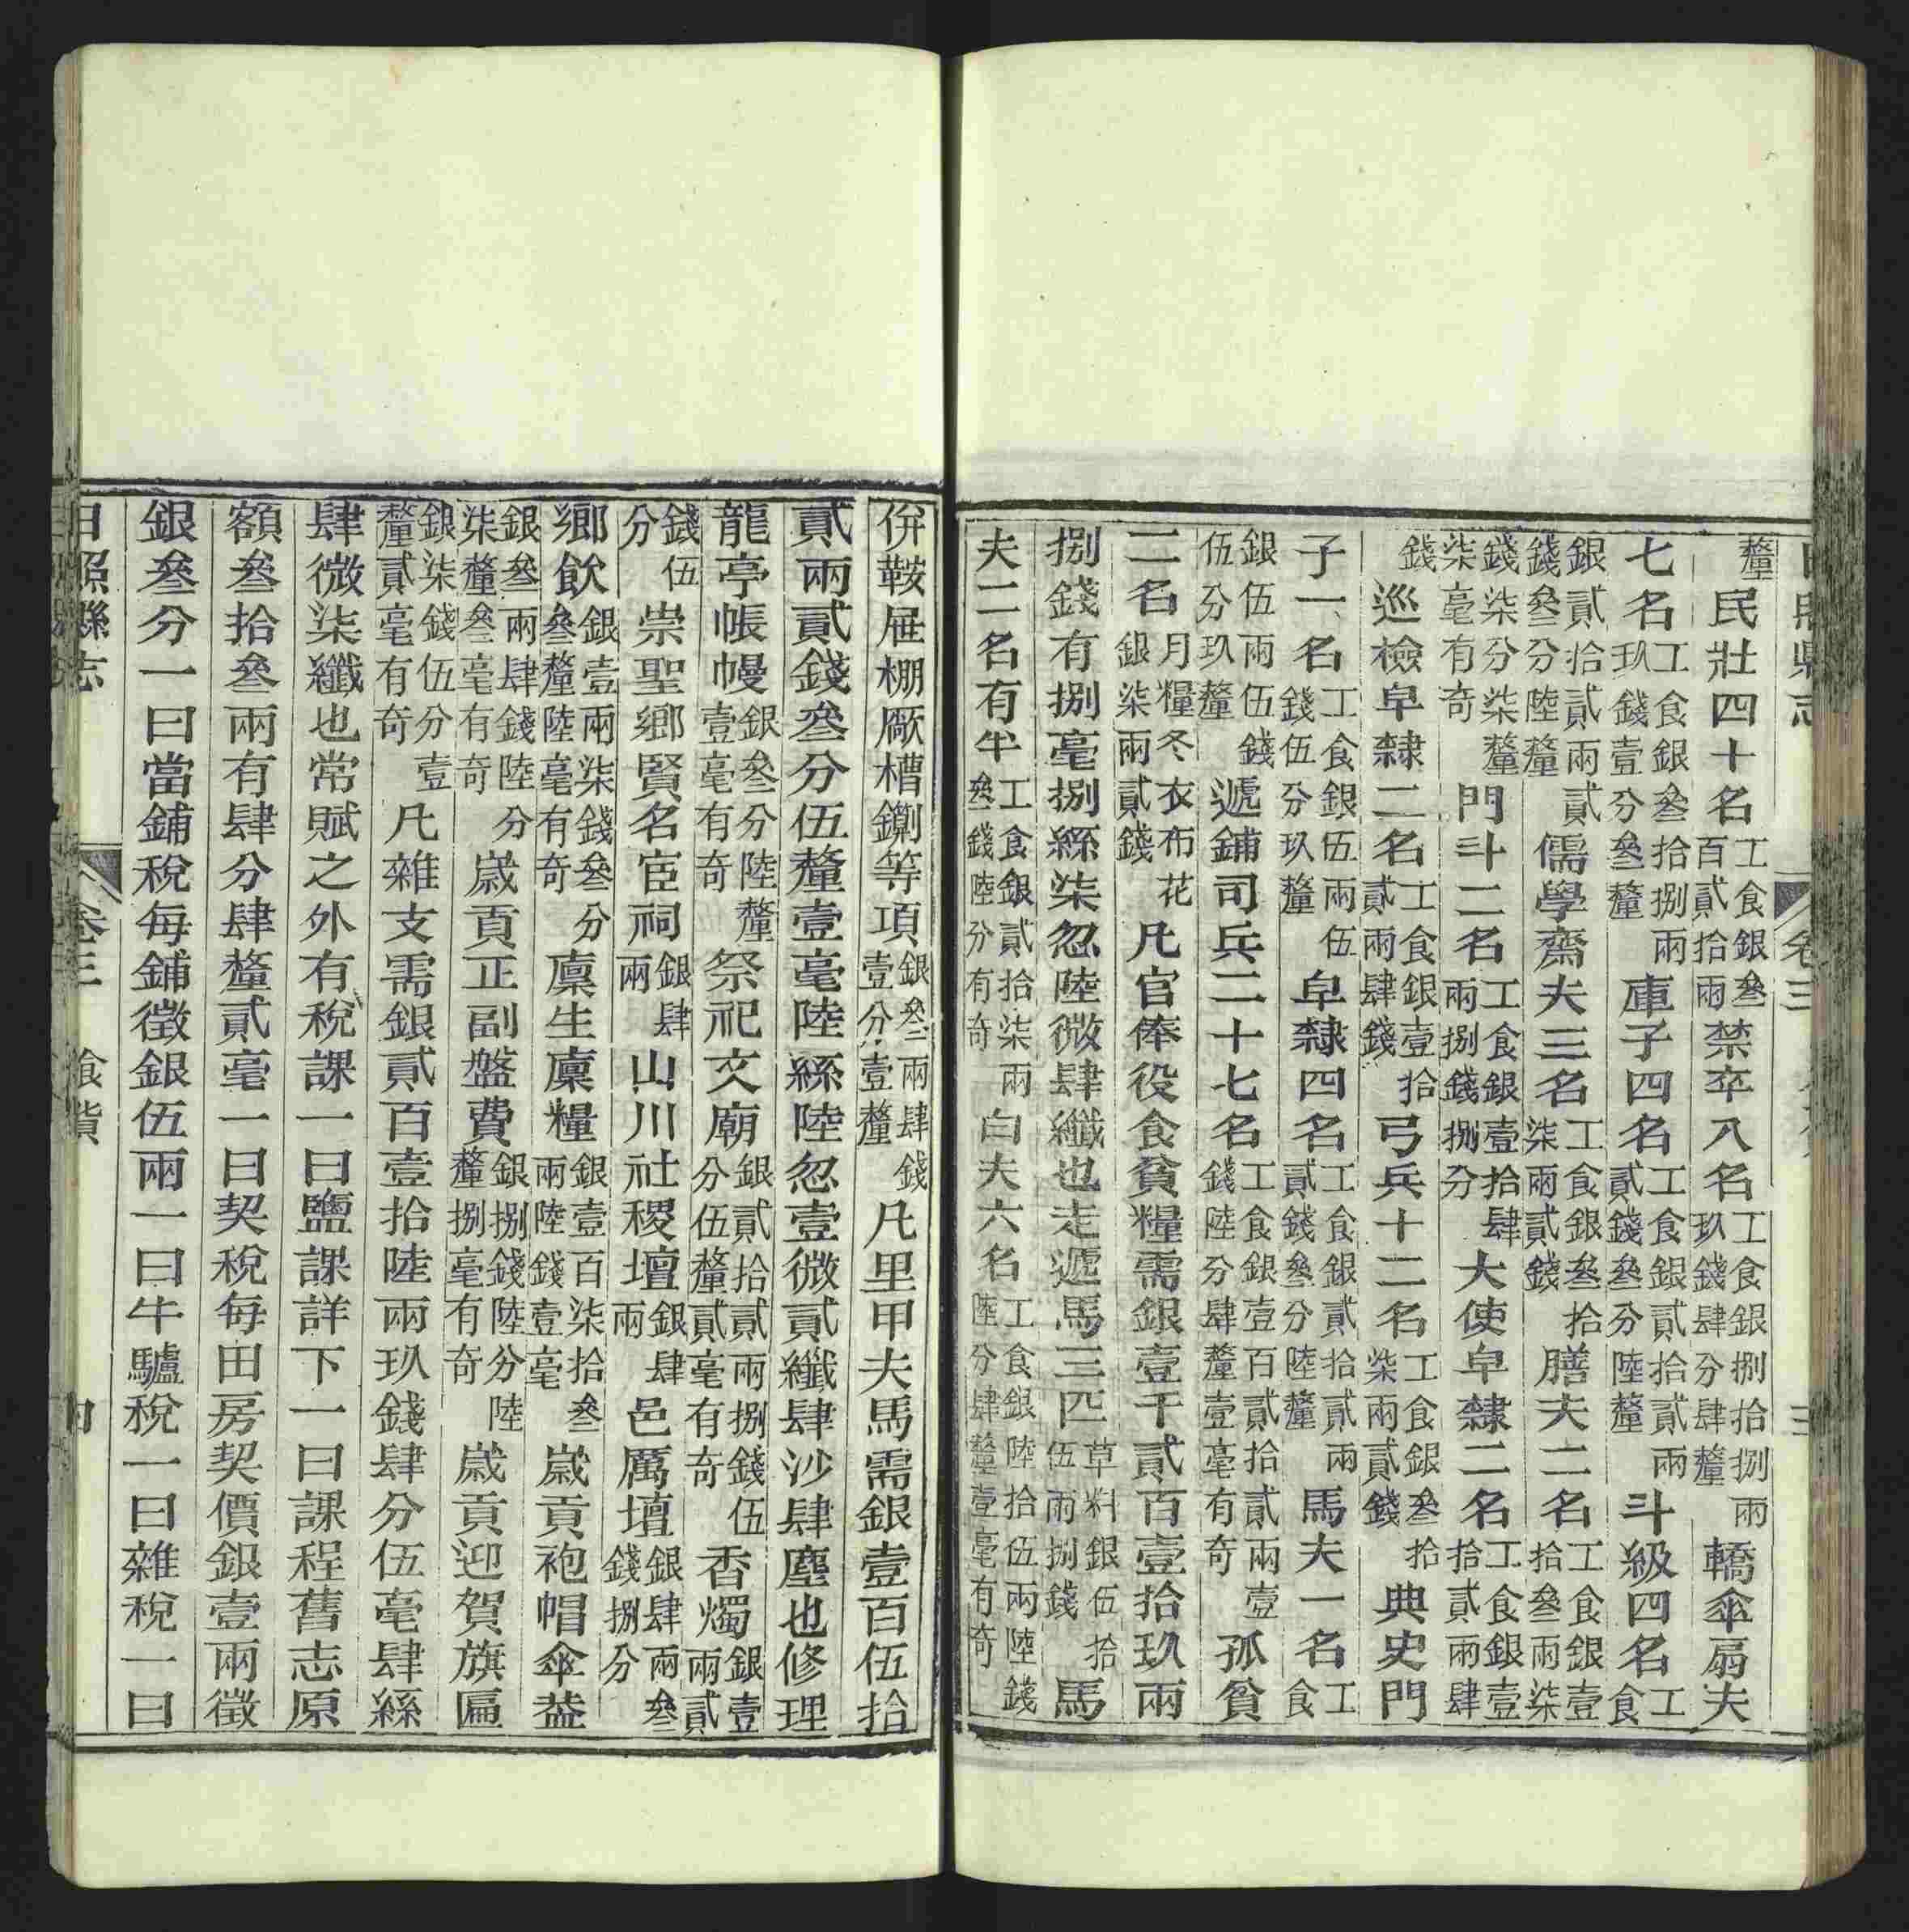 釐民壯四十名工食銀叁百貳拾兩禁卒八名工食銀捌拾捌兩玖錢肆分肆釐轎傘扇夫
七名工食銀叁拾捌兩玖錢壹分叁釐庫子四名工食銀貳拾貳兩貳錢叁分陸釐斗級四名工食
銀貳拾貳兩貳錢叁分陸釐儒學齋夫三名工食銀叁拾柒兩貳錢膳夫二名工食銀壹拾叁兩柒
錢柒分柒釐柒毫有奇門斗二名工食銀壹拾肆兩捌錢捌分大使皁隸二名工食銀壹拾貳兩肆
錢巡檢皁隸二名工食銀壹拾貳兩肆錢弓兵十二名工食銀叁拾柒兩貳錢典史門
子一名工食銀伍兩伍錢伍分玖釐皁隸四名工食銀貳拾貳兩貳錢叁分陸釐馬夫一名工食
銀伍兩伍錢伍分玖釐遞鋪司兵二十七名工食銀壹百貳拾貳兩壹錢陸分肆釐壹毫有奇孤貧
二名月糧冬衣布花銀柒兩貳錢凡官俸役食貧糧需銀壹千貳百壹拾玖兩
捌錢有捌毫捌絲柒忽陸微肆纖也走遞馬三匹草料銀伍拾伍兩捌錢馬
夫二名有半工食銀貳拾柒兩叁錢陸分有奇白夫六名工食銀陸拾伍兩陸錢陸分肆釐壹毫有奇
倂鞍屜棚厰槽鍘等項銀叁兩肆錢壹分壹釐凡里甲夫馬需銀壹百伍拾
貳兩貳錢叁分伍釐壹毫陸絲陸忽壹微貳纖肆沙肆塵也修理
龍亭帳幔銀叁分陸釐壹毫有奇祭祀文廟銀貳拾貳兩捌錢伍分伍釐貳毫有奇香燭銀壹兩貳
錢伍分崇聖鄉賢名宦祠銀肆兩山川社稷壇銀肆兩邑厲壇銀肆兩叁錢捌分
鄉飲銀壹兩柒錢叁分叁釐陸毫有奇廩生廩糧銀壹百柒拾叁兩陸錢壹毫歲貢袍帽傘葢
銀叁兩肆錢陸分柒釐叁毫有奇歲貢正副盤費銀捌錢陸分陸釐捌毫有奇歲貢迎賀旗匾
銀柒錢伍分壹釐貳毫有奇凡雜支需銀貳百壹拾陸兩玖錢肆分伍毫肆絲
肆微柒纖也常賦之外有稅課一曰鹽課詳下一曰課程舊志原
額叁拾叁兩有肆分肆釐貳毫一曰契稅每田房契價銀壹兩徵
銀叁分一曰當鋪稅每鋪徵銀伍兩一曰牛驢稅一曰雜稅一曰
日照縣志 卷三 食貨